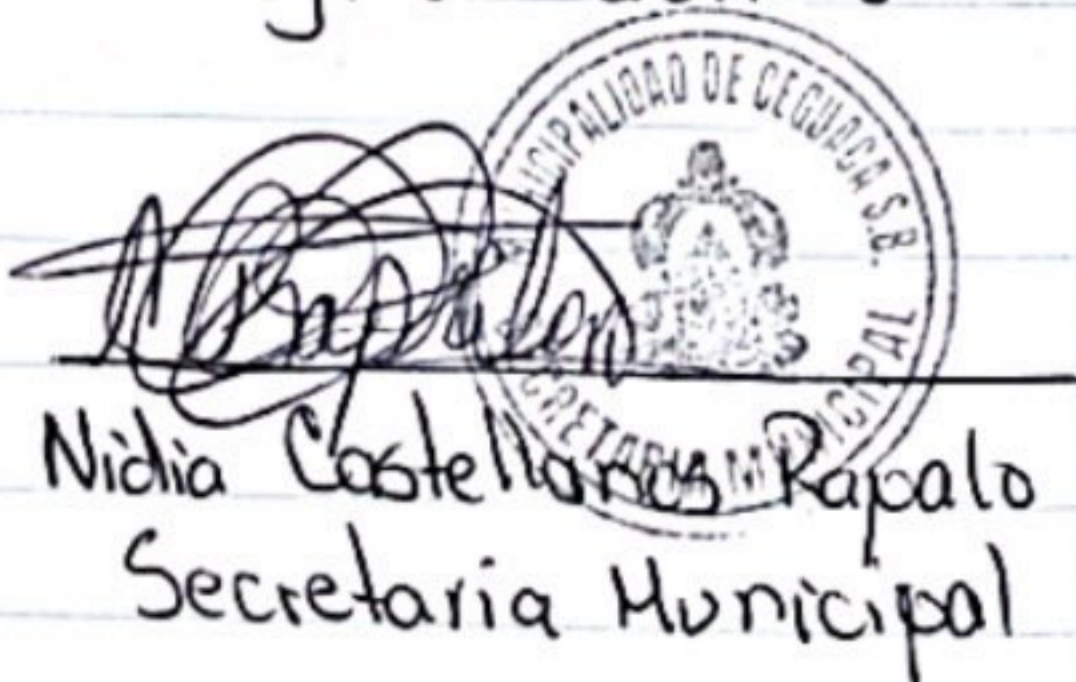 MUNICIPALIDAD DE CEGUACA S.B.
SECRETARIA MUNICIPAL
Nidia Castellanos Rapalo
Secretaria Municipal